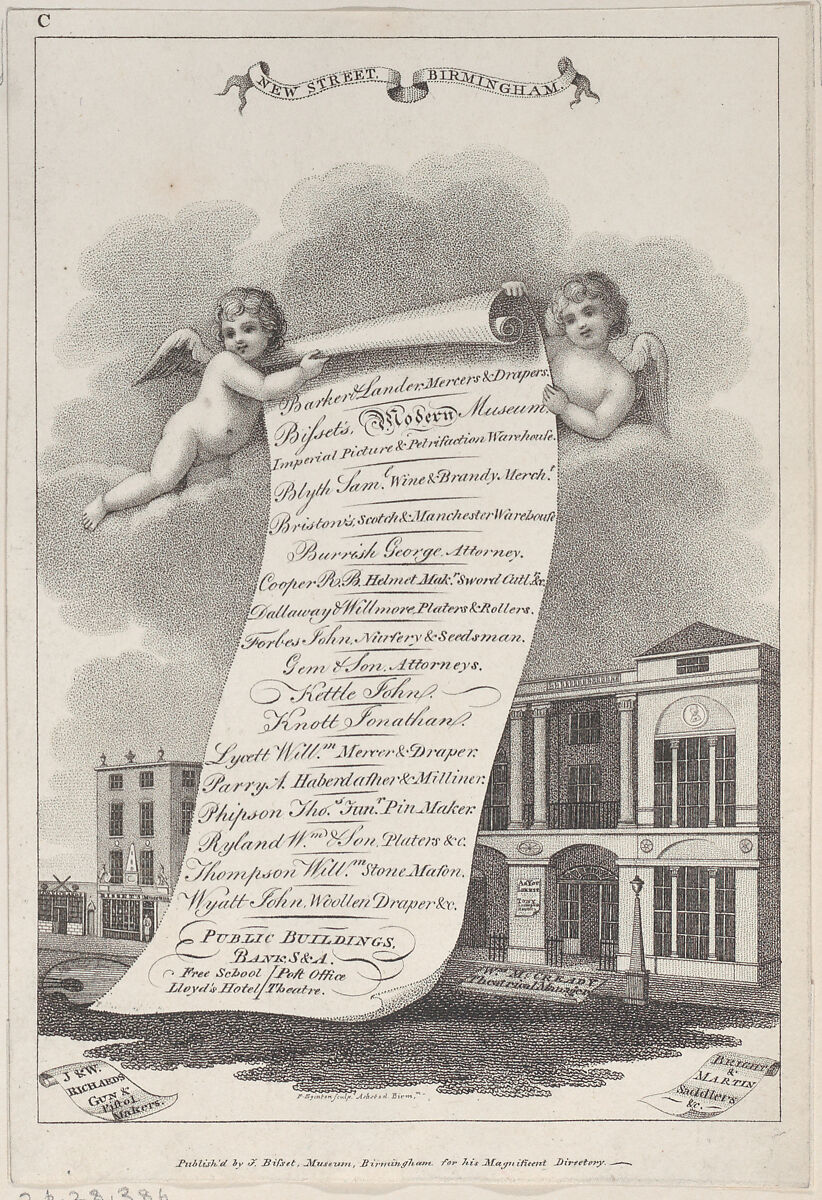 C
NEW STREET. BIRMINGHAM.
Barker & Lander, Mercers & Drapers.
Bisset's, Modern Museum.
Imperial Picture & Petrifaction Warehouse.
Blyth Sam.l Wine & Brandy Merch.t
Briston's, Scotch & Manchester Warehouse
Burrish George, Attorney.
Cooper R. B. Helmet Mak.r Sword Cutl.r &c.
Dallaway & Willmore, Platers & Rollers.
Forbes John, Nursery & Seedsman.
Gem & Son, Attorneys.
Kettle John.
Knott Jonathan.
Lycett Will.m Mercer & Draper.
Parry A. Haberdasher & Milliner.
Phipson Tho.s Jun.r Pin Maker.
Ryland W.m & Son, Platers &c.
Thompson Will.m Stone Mason.
Wyatt John, Woollen Draper &c.
PUBLIC BUILDINGS,
BANKS & A.
Free School / Post Office
Lloyd's Hotel / Theatre.
AS YOU
LIKE IT
W.m M.cCREADY
Theatrical Manager
J & W.
RICHARDS
GUN &
Pistol
Makers.
BRIGHT
&
MARTIN
Saddlers
&c.
Publish'd by J. Bisset, Museum, Birmingham for his Magnificent Directory.